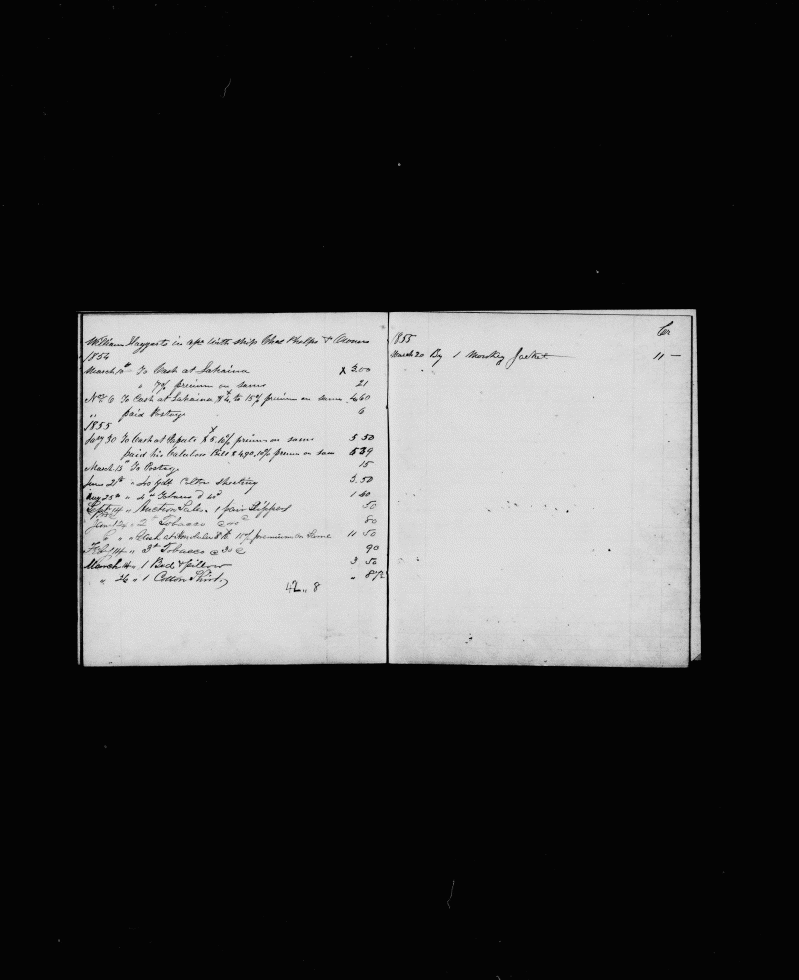 William Haggarty in a/c with ship Chas Phelps & Owners
1854
March 10th To Cash at Lahaina X 3.00
" 7% premium on same 21
Nov 6 To Cash at Lahaina $4, to 15% premium on same 4 60
" paid Postage 6
1855
Jany 30 To Cash at $5. 10% premium on same 5 50
paid his Bill $4.90, 10% premm on same 5 39
March 15th To Postage 15
June 21st " yds Cotton Sheeting 3.50
Aug 25th " 4 lb Tobacco 1 60
Sept 14 " Auction Sales. 1 pair Slippers 50
Jan 12 " 2 lb Tobacco 80
" " " Cash at Honolulu $10 15% premium on same 11 50
Feb 14 " 3 lb Tobacco @ 30c 90
March 4 " 1 Bed & pillow 3 50
" 26 " 1 Cotton Shirt " 87½
42 " 8
Cr
1855
March 20 By 1 Monkey Jacket 11 —